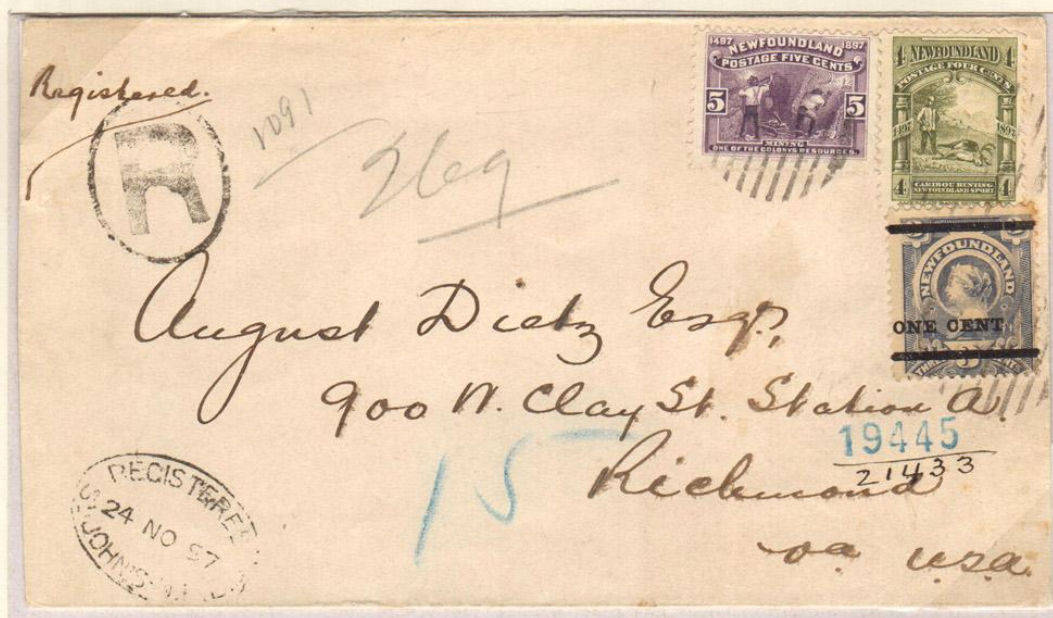 Registered.
R
1091
269
1497 NEWFOUNDLAND 1897
POSTAGE FIVE CENTS
5 5
MINING
ONE OF THE COLONYS RESOURCES.
4 NEWFOUNDLAND 4
POSTAGE FOUR CENTS
1497 1897
4 CARIBOU HUNTING 4
NEWFOUNDLAND SPORT
NEWFOUNDLAND
ONE CENT
August Dietz Esqr,
900 W. Clay St. Station A.
19445
21433
Richmond
va. U.S.A.
15
REGISTERED
24 NO 97
ST JOHN'S